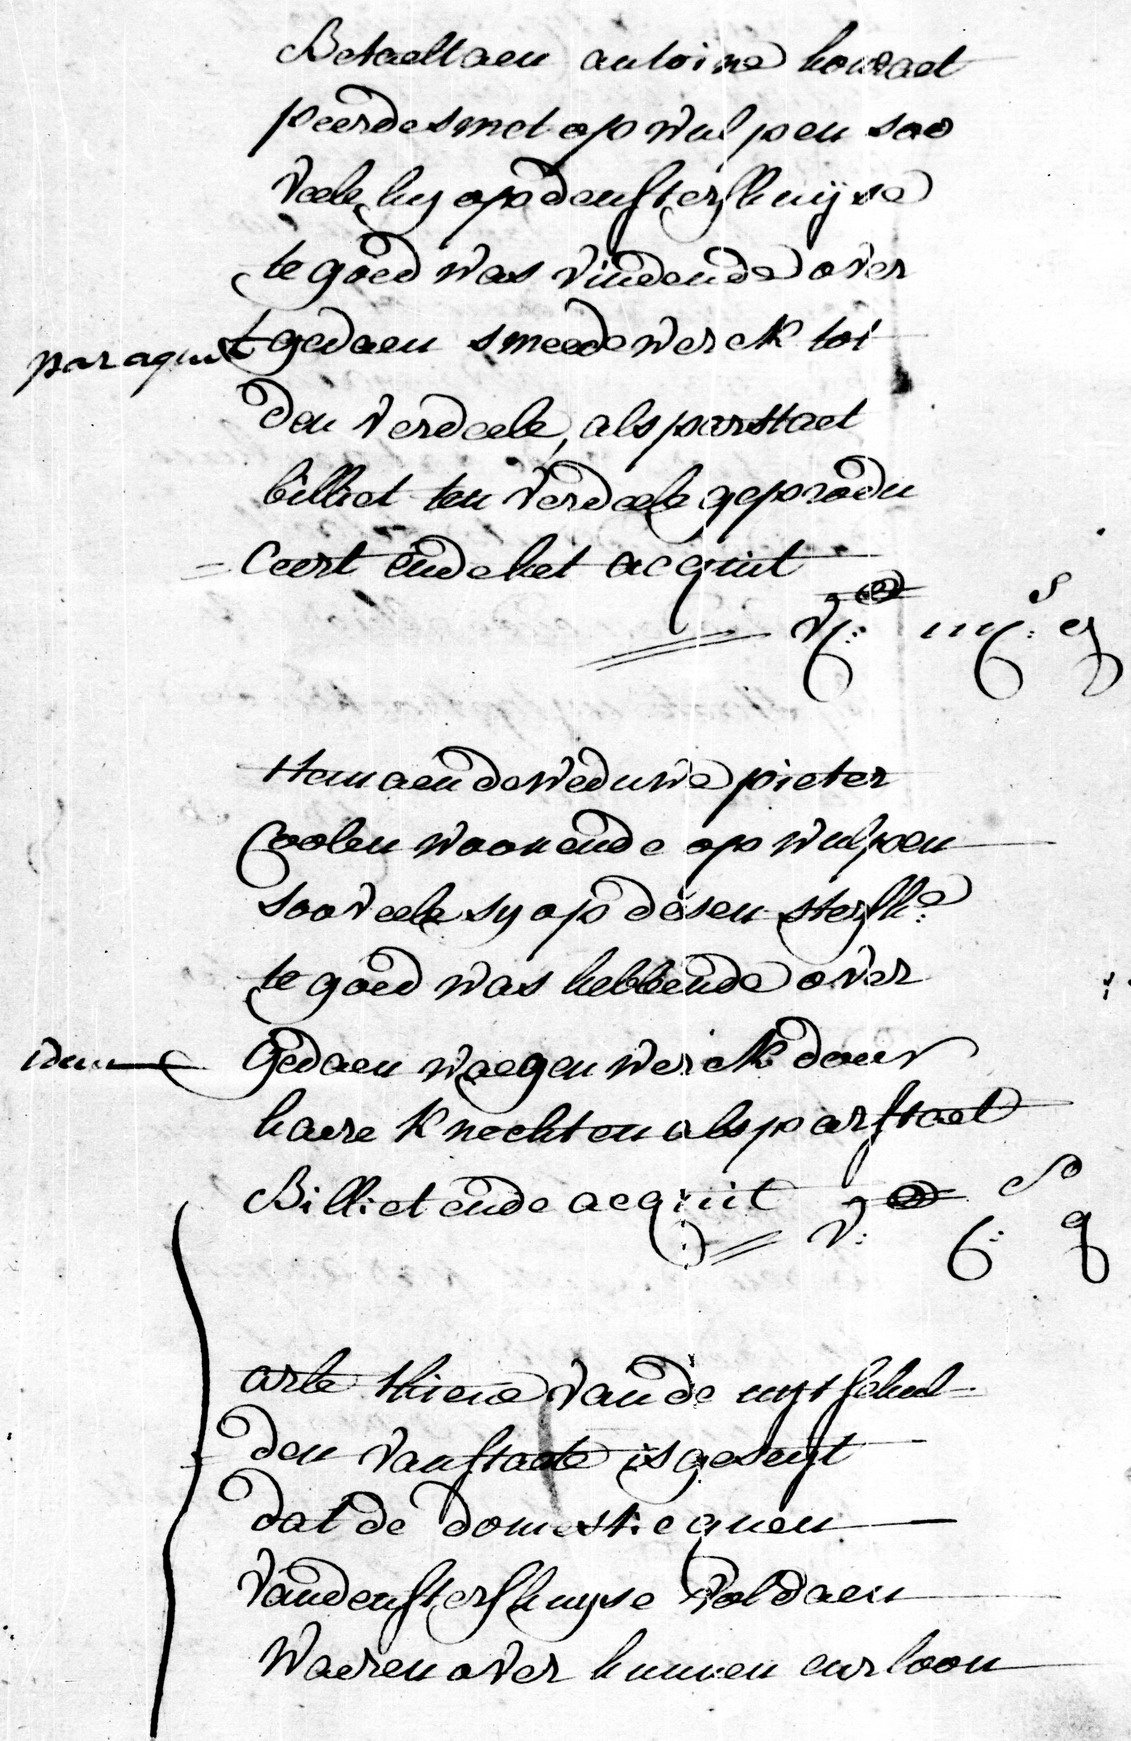 Betaelt aen antoine houcaet
peerdesmet op wulpen soo
veele hy op den sterfhuijse
te goed was vindende over
par aquit t gedaen smeedewerck tot
den verdeele, als par staet
billiet ten verdeele geprodu
ceert ende het acquit
Item aen de weduwe pieter
Coolen woonende op wulpen
soo veele sy op desen sterfh:e
te goed was hebbende over
idem Gedaen waegenwerck door
haere knechten als par staet
Billiet ende acquit
arle thiene van de uijtschul-
den van staete is geseijt
dat de domesticquen
van den sterfhuyse voldaen
waeren over hunnen eurloon